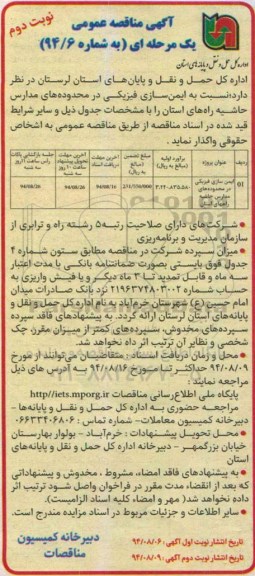 نوبت دوم
آگهی مناقصه عمومی
یک مرحله ای (به شماره ۹۴/۶)
اداره کل حمل و نقل و پایانه های استان
اداره کل حمل و نقل و پایان‌های استان لرستان در نظر
دارد،نسبت به ایمن‌سازی فیزیکی در محدوده‌های مدارس
حاشیه راه‌های استان را با مشخصات جدول ذیل و سایر شرایط
قید شده در اسناد مناقصه از طریق مناقصه عمومی به اشخاص
حقوقی واگذار نماید .
ردیف
عنوان پروژه
برآورد اولیه (مبلغ به ریال)
مبلغ تضمین (مبلغ به ریال)
آخرین مهلت دریافت اسناد
آخرین مهلت تحویل پیشنهاد
01
ایمن سازی فیزیکی در محدوده‌های مدارس حاشیه راه‌های استان
94/08/16
94/08/26
94/08/26
شرکت‌های دارای صلاحیت رتبه ۵ رشته راه و ترابری از
سازمان مدیریت و برنامه‌ریزی
میزان سپرده شرکت در مناقصه مطابق ستون شماره ۴
جدول فوق بایستی بصورت ضمانتنامه بانکی با مدت اعتبار
سه ماه و قابل تمدید تا ۳ ماه دیگر و یا فیش واریزی به
حساب شماره ۲۱۹۶۳۷۴۸۰۳۰۰۲ نزد بانک صادرات میدان
امام حسین (ع) شهرستان خرم‌آباد به نام اداره کل حمل و نقل و
پایانه‌های استان لرستان ارائه گردد. به پیشنهادهای فاقد سپرده
سپرده‌های مخدوش، سپرده‌های کمتر از میزان مقرر، چک
شخصی و نظایر آن ترتیب اثر داه نخواهد شد.
محل و زمان دریافت اسناد : متقاضیان می‌توانند از مورخ
۹۴/۰۸/۰۹ حداکثر تا مورخ ۹۴/۰۸/۱۶ به آدرس های ذیل
مراجعه نمایند :
پایگاه ملی اطلاع‌رسانی مناقصات http//iets.mporg.ir
مراجعه حضوری به اداره کل حمل و نقل و پایانه‌ها -
دبیرخانه کمیسیون معاملات- شماره تماس : ۰۶۶۳۳۴۰۶۸۰۶
محل تحویل پیشنهادات : خرم‌آباد - بولوار بهارستان
خیابان بزرگمهر - دبیرخانه اداره کل حمل و نقل و پایانه‌های
استان
به پیشنهادهای فاقد امضاء، مشروط ، مخدوش و پیشنهاداتی
که بعد از انقضاء مدت مقرر در فراخوان واصل شود ترتیب اثر
داده نخواهد شد( مهر و امضاء کلیه اسناد الزامیست).
سایر اطلاعات و جزئیات مربوط در اسناد مزایده مندرج است.
تاریخ انتشار نوبت اول آگهی : ۹۴/۰۸/۰۶
تاریخ انتشار نوبت دوم آگهی : ۹۴/۰۸/۰۹
دبیرخانه کمیسیون
مناقصات